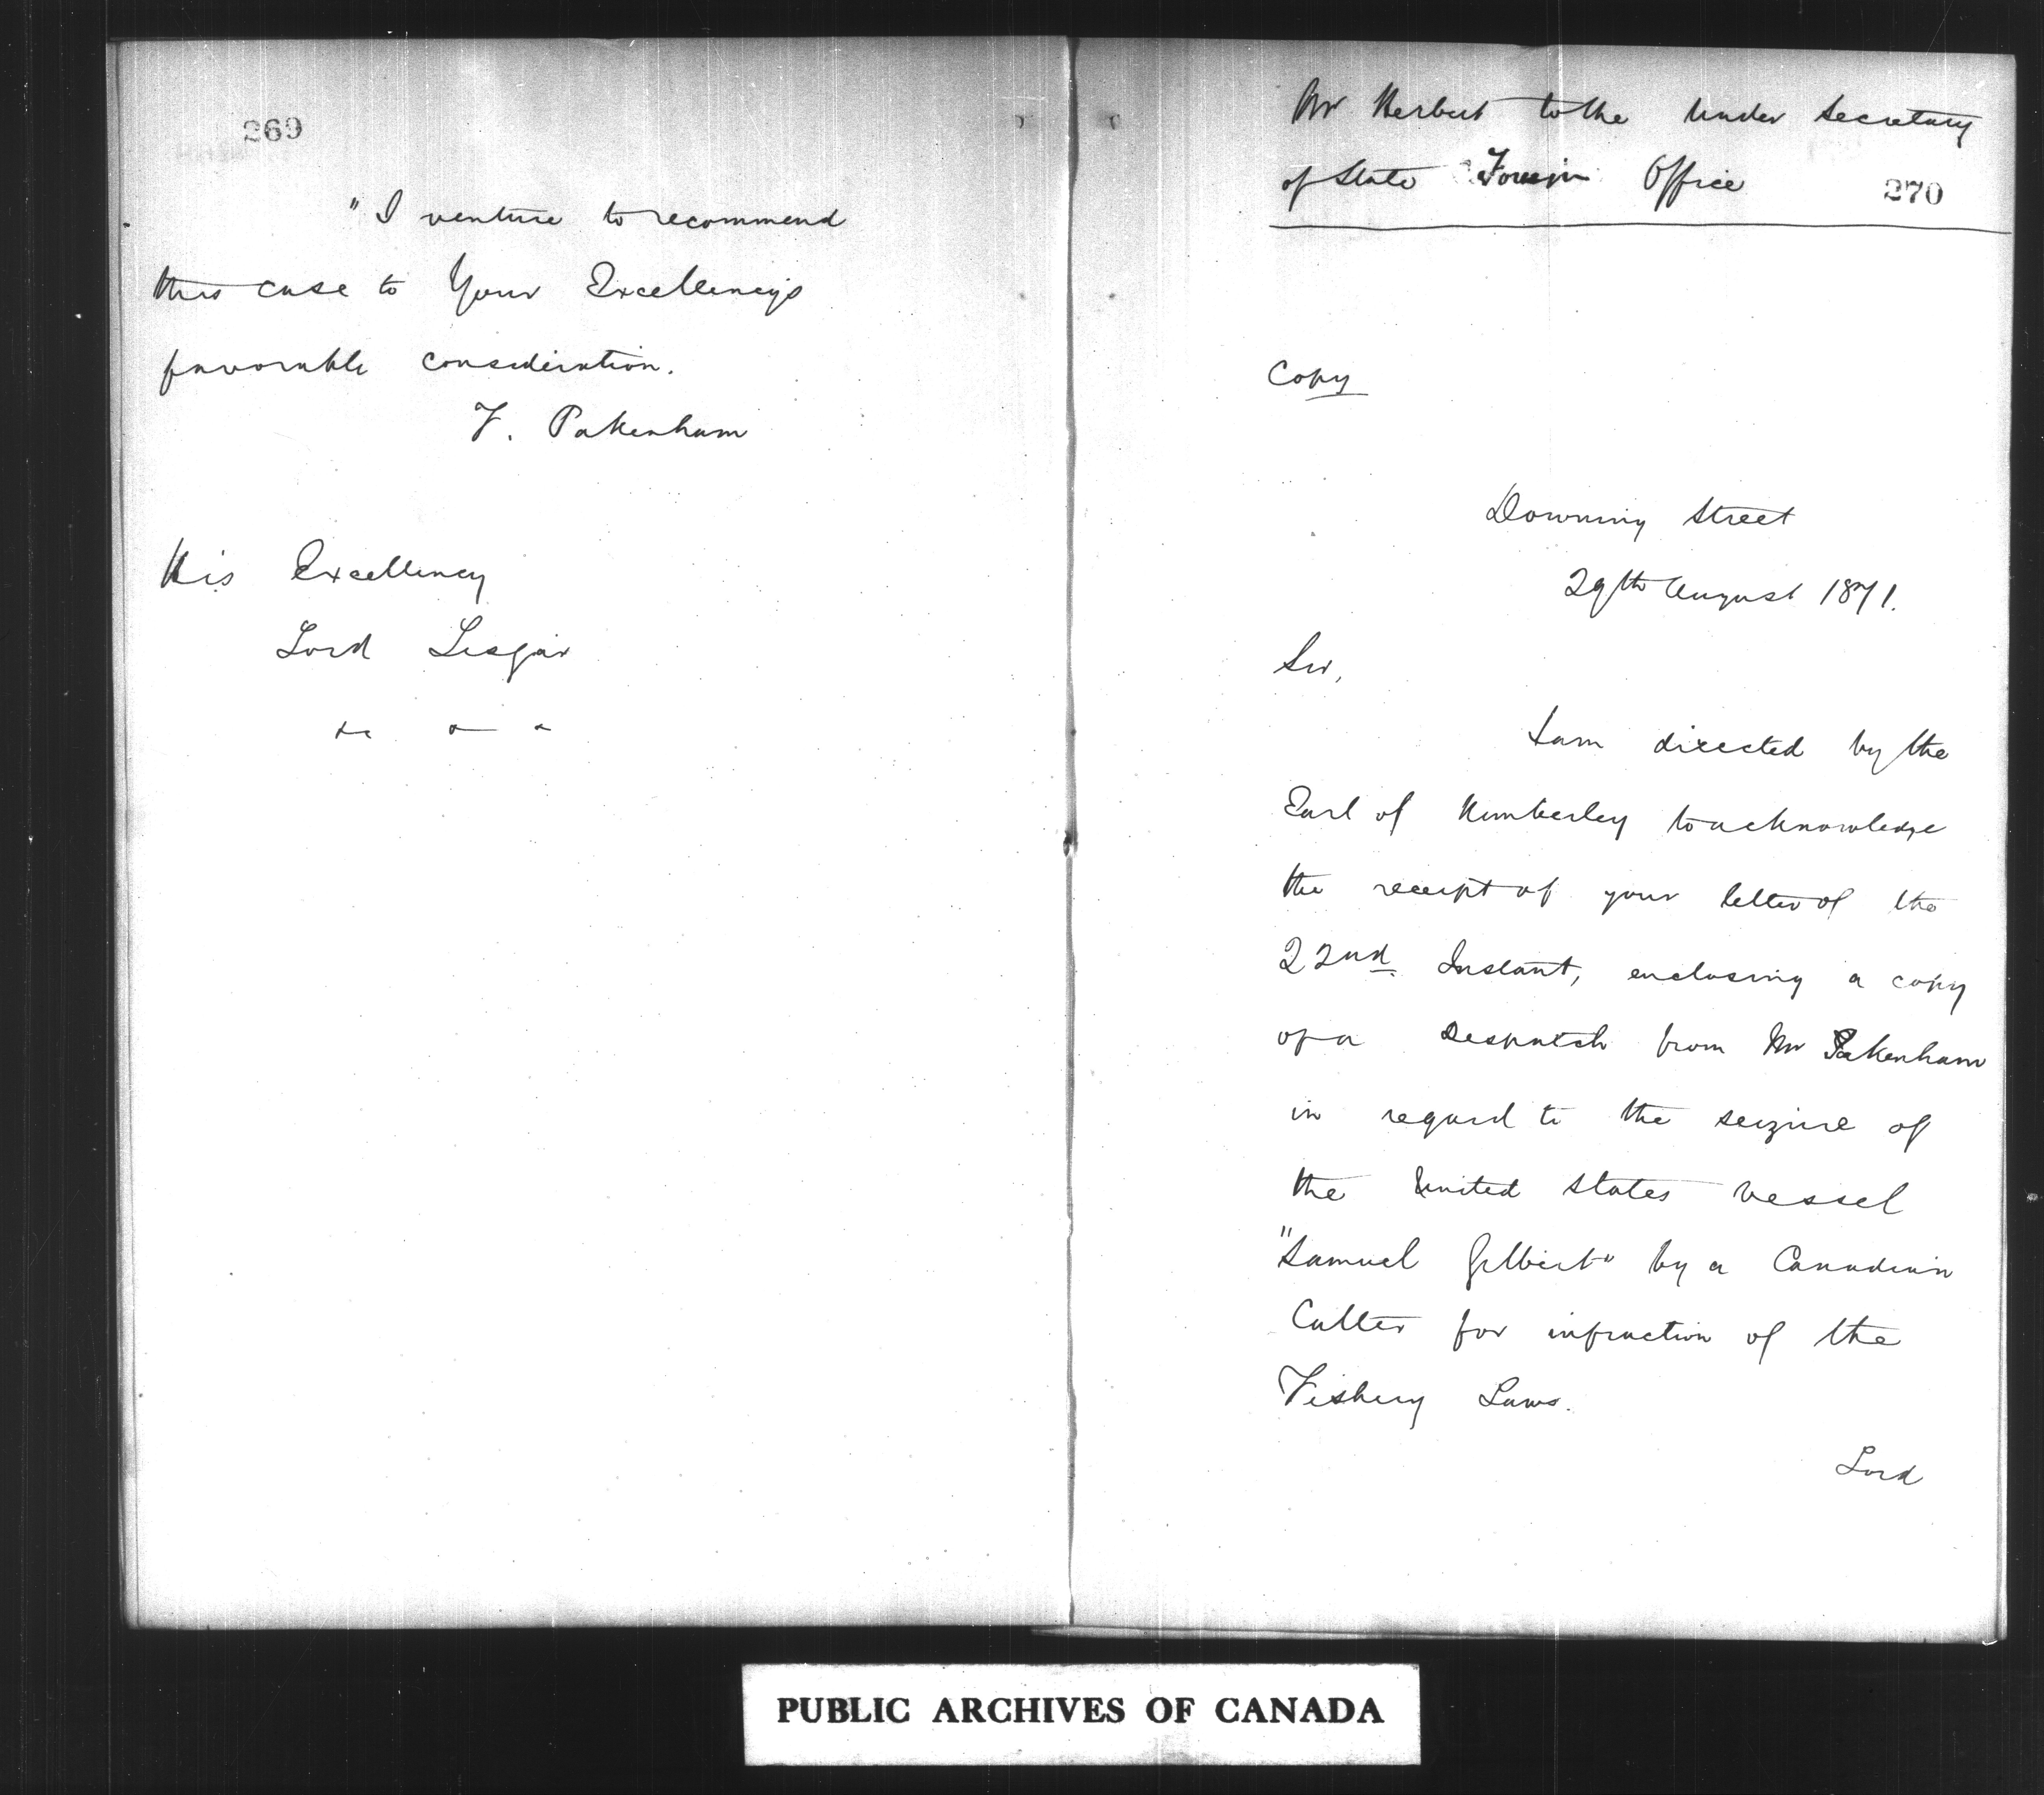 269
"I venture to recommend
this case to Your Excellency's
favorable consideration.
F. Pakenham
His Excellency
Lord Lisgar
&c - -
Mr Herbert to the Under Secretary
of State Foreign Office
270
Copy
Downing Street
29th August 1871.
Sir,
I am directed by the
Earl of Kimberley to acknowledge
the receipt of your letter of the
22nd Instant, enclosing a copy
of a Despatch from Mr Pakenham
in regard to the seizure of
the United States vessel
"Samuel Gilbert" by a Canadian
Cutter for infraction of the
Fishery Laws.
Lord
PUBLIC ARCHIVES OF CANADA